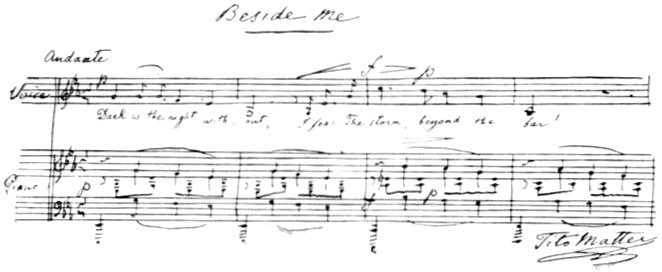 Beside Me
Andante
p f p
Voice
Dark is the night with-out, I fear The storm, beyond the bar!
Piano p f p
Tito Mattei